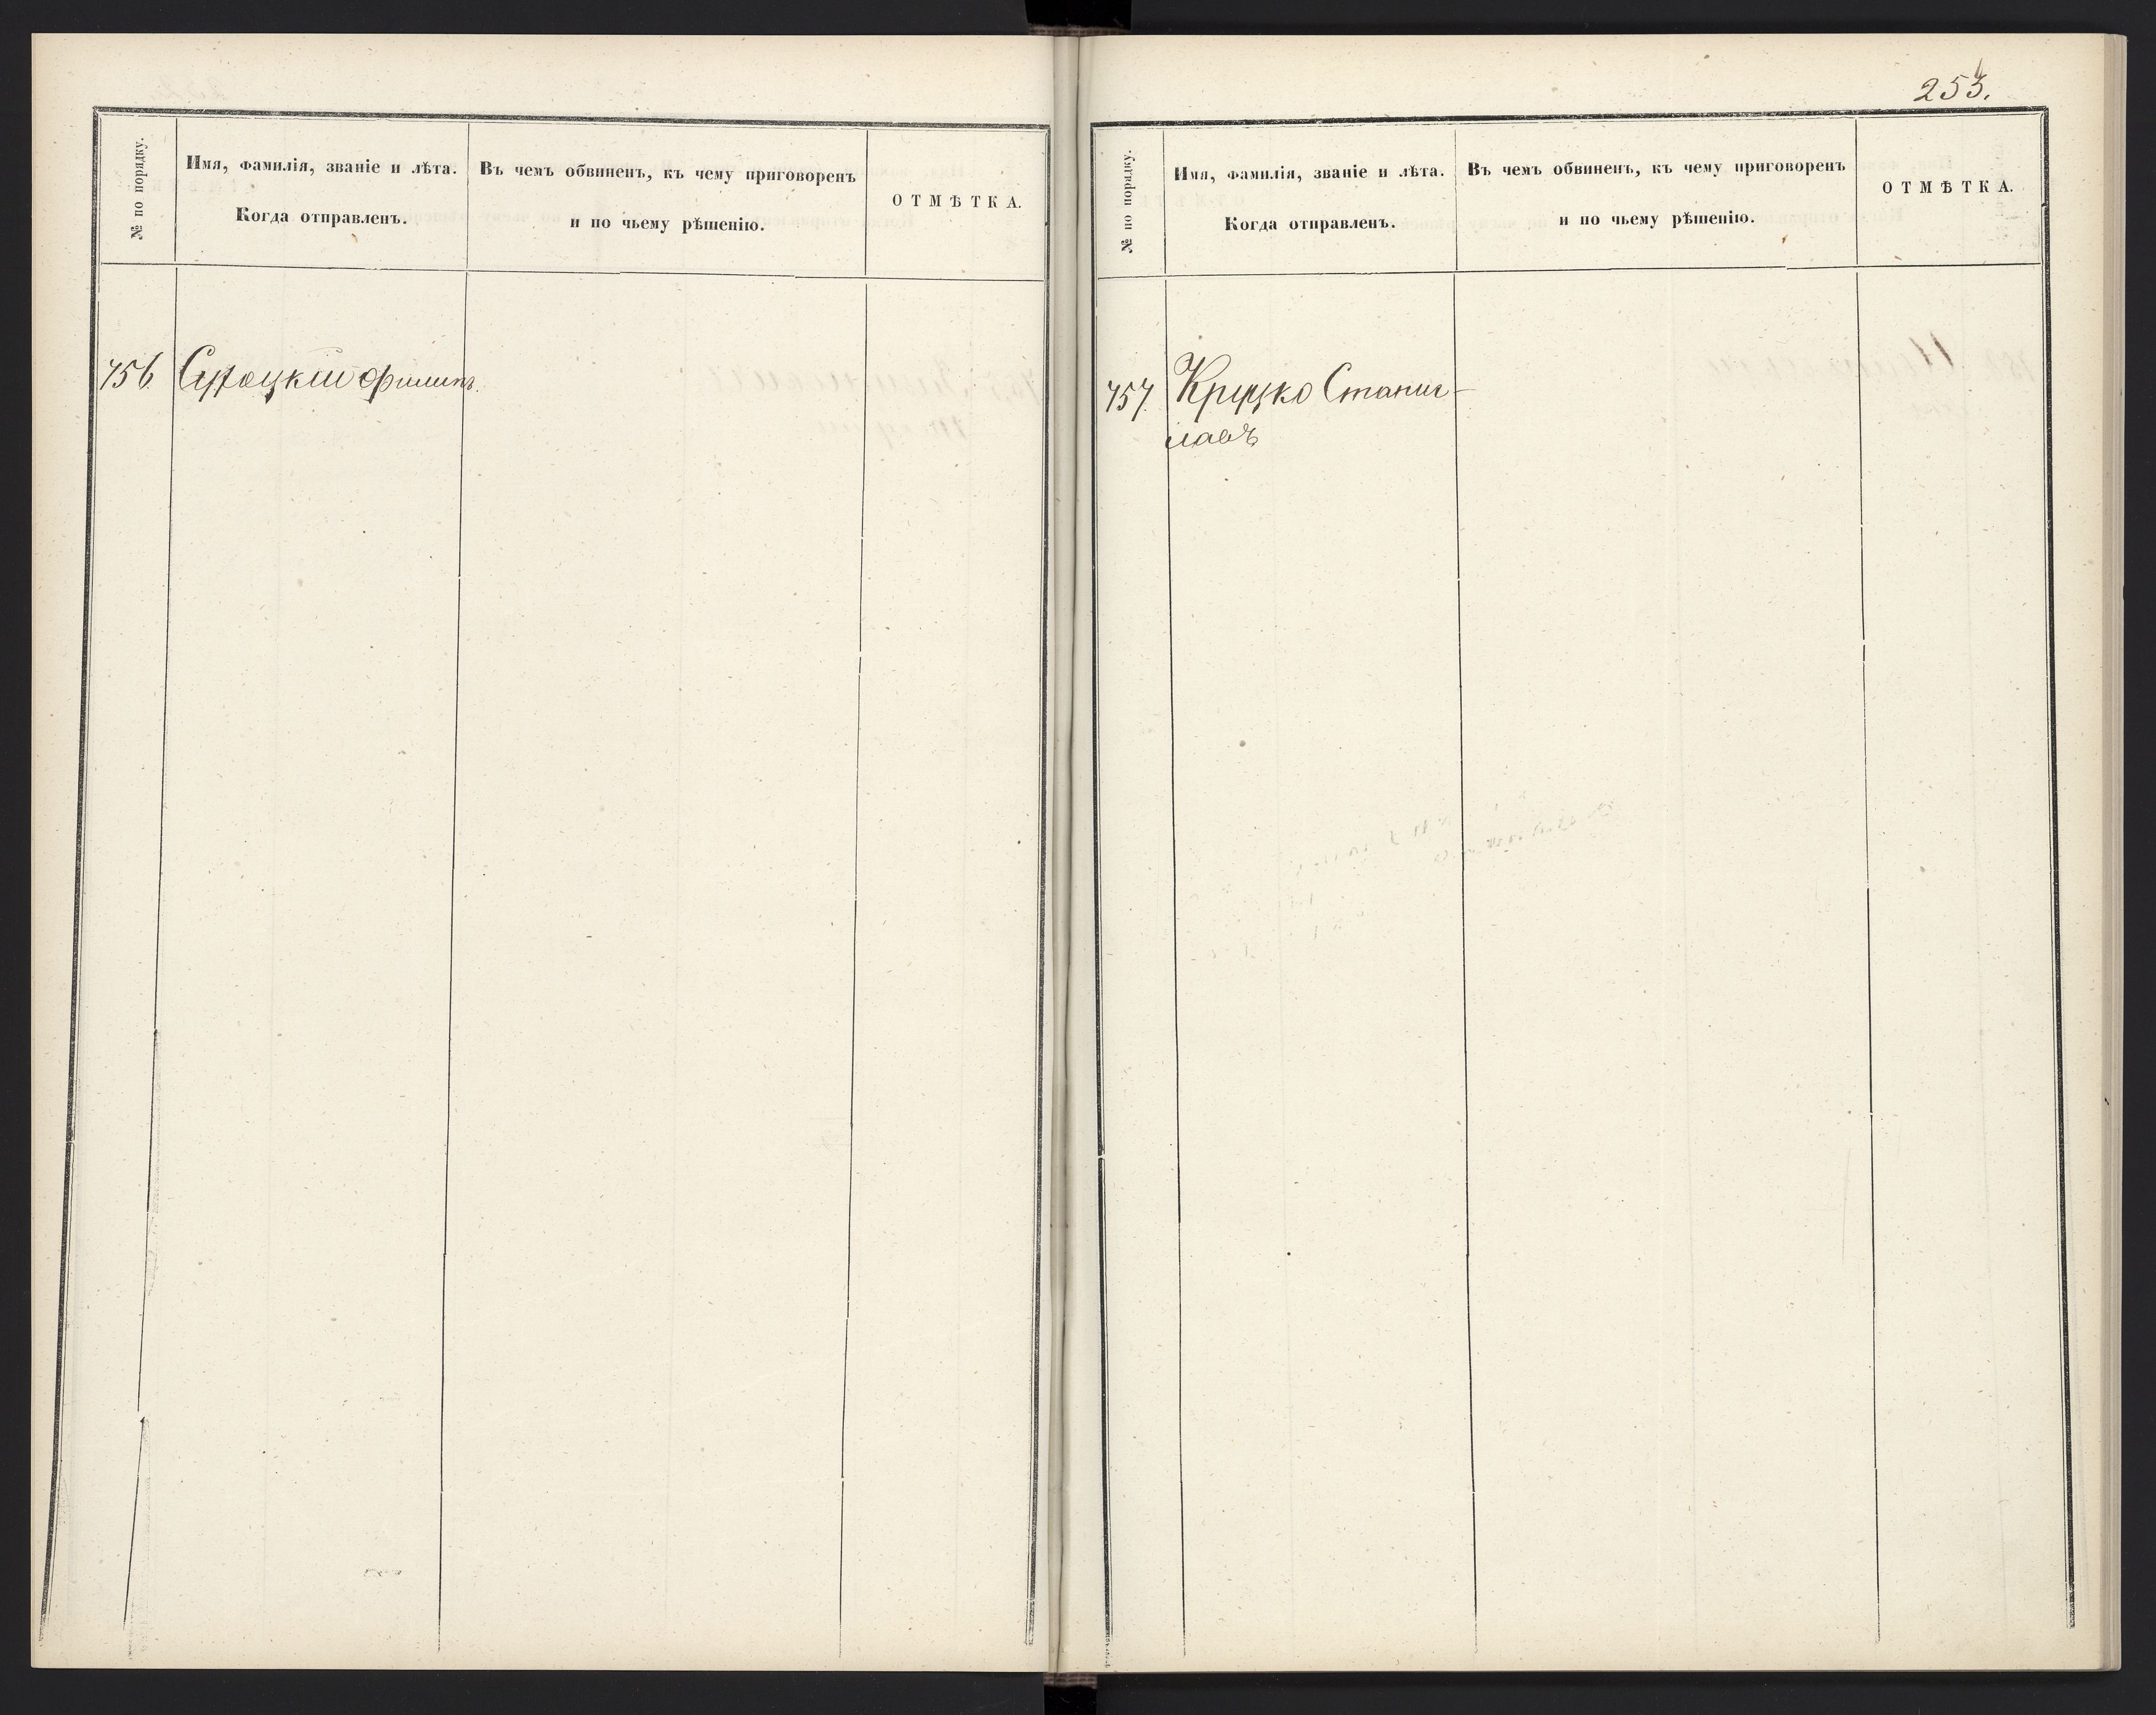 № по порядку.
Имя, фамилія, званіе и лѣта.
Когда отправленъ.
Въ чемъ обвиненъ, къ чему приговоренъ
и по чьему рѣшенію.
ОТМѢТКА.
756. Филипъ.
253.
№ по порядку.
Имя, фамилія, званіе и лѣта.
Когда отправленъ.
Въ чемъ обвиненъ, къ чему приговоренъ
и по чьему рѣшенію.
ОТМѢТКА.
757. Круцко Станис-
лавъ